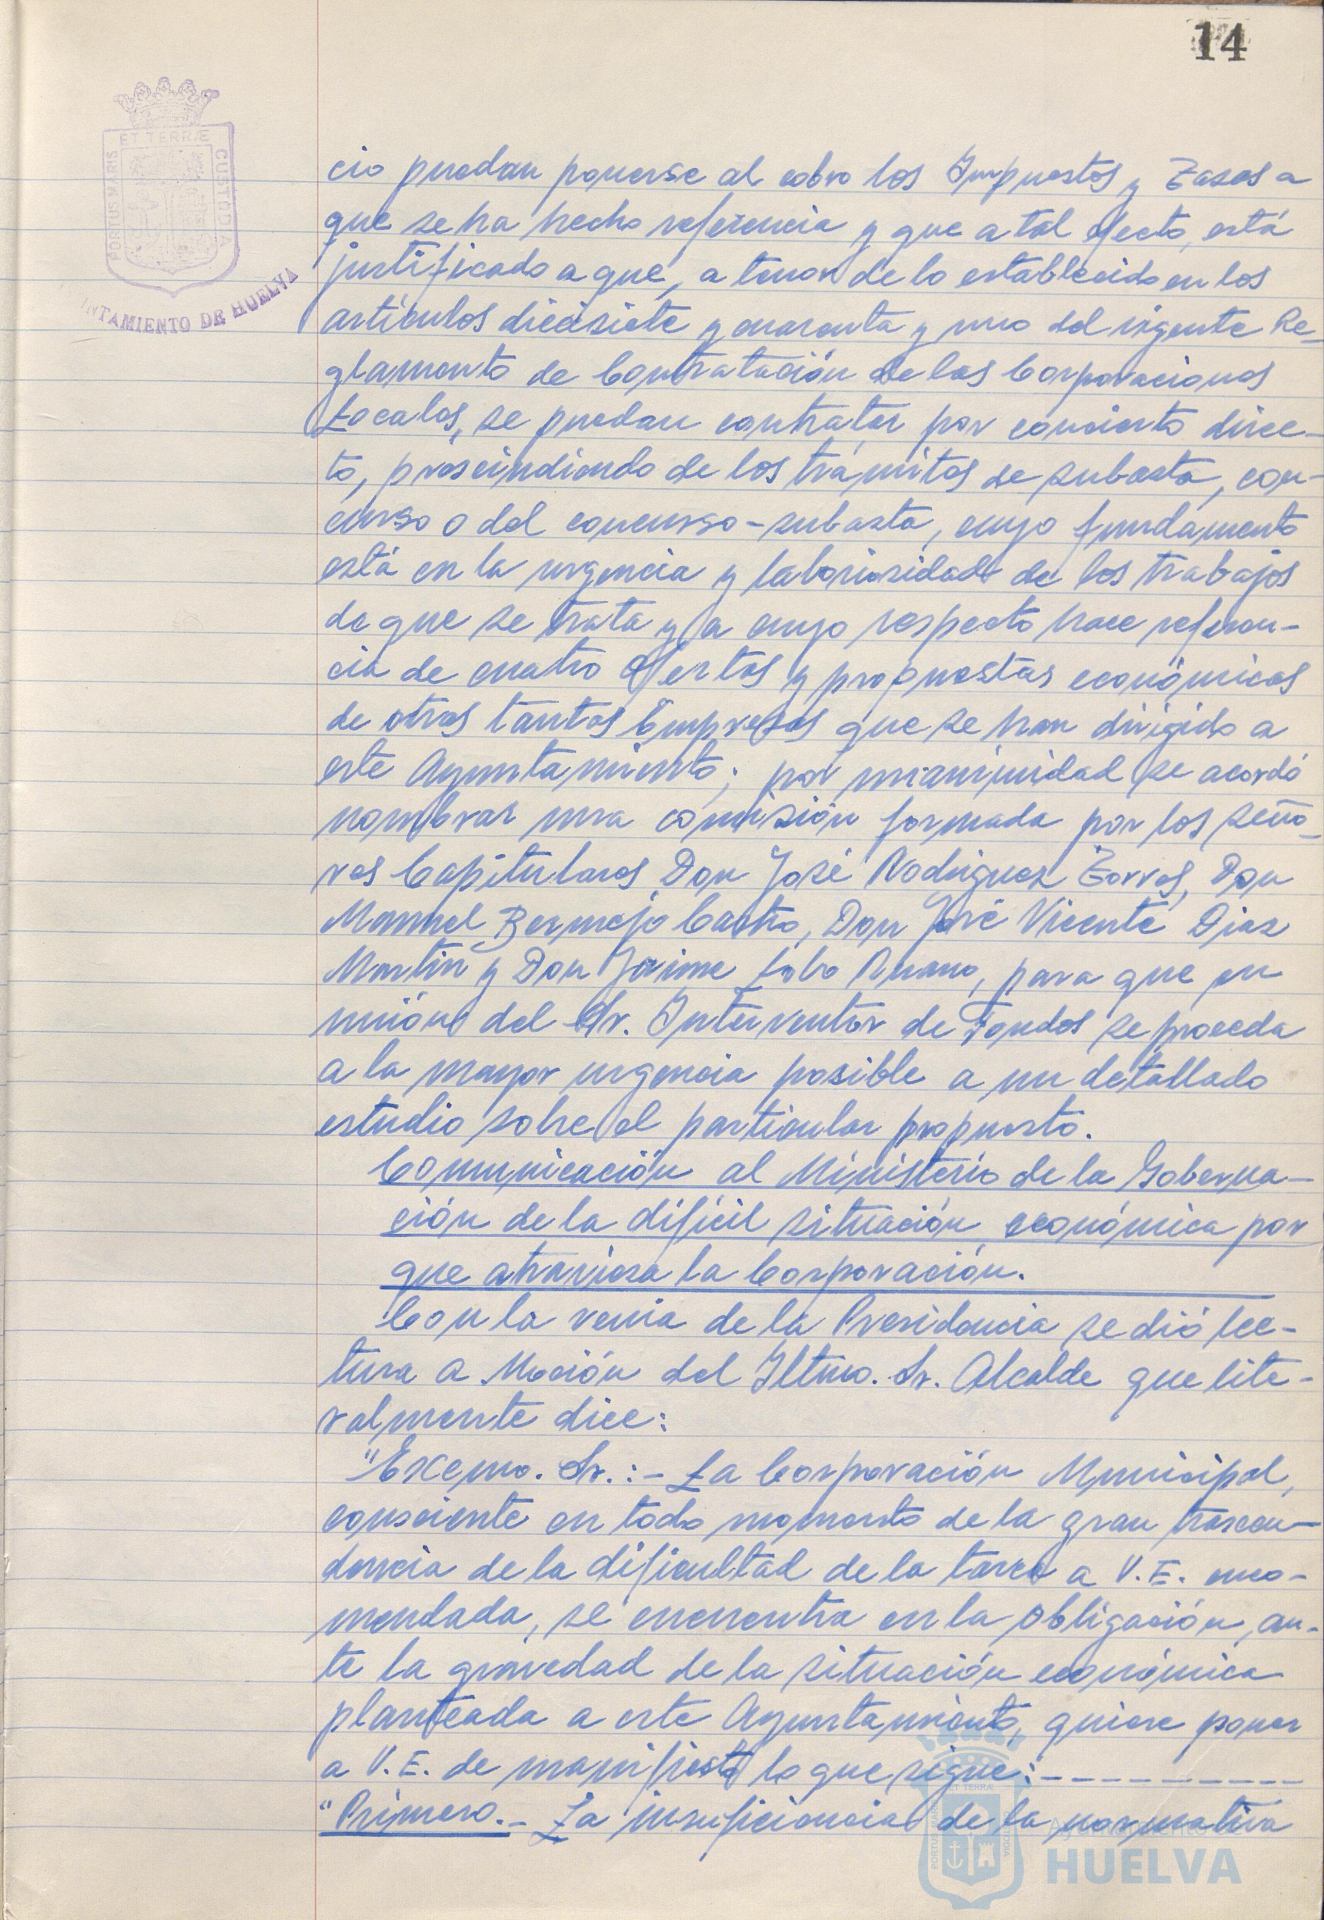 14
PORTUS MARIS ET TERRÆ CUSTODIA
NTAMIENTO DE HUELVA
cio puedan ponerse al cobro los Impuestos y Tasas a
que se ha hecho referencia y que a tal efecto, está
justificado a que, a tenor de lo establecido en los
artículos diecisiete y cuarenta y uno del vigente Re-
glamento de Contratación de las Corporaciones
Locales, se puedan contratar por concierto direc-
to, prescindiendo de los trámites de subasta, con-
curso o del concurso-subasta, cuyo fundamento
está en la urgencia y laboriosidad de los trabajos
de que se trata y a cuyo respecto hace referen-
cia de cuatro Ofertas y propuestas económicas
de otras tantas Empresas que se han dirigido a
este Ayuntamiento; por unanimidad se acordó
nombrar una comisión formada por los Seño-
res Capitulares Don José Rodríguez Torres, Don
Manuel Bermejo Castro, Don José Vicente Diaz
Martín y Don Jaime Lobo Ruano, para que en
unión del Sr. Interventor de Fondos se proceda
a la mayor urgencia posible a un detallado
estudio sobre el particular propuesto.
Comunicación al Ministerio de la Goberna-
ción de la difícil situación económica por
que atraviesa la Corporación.
Con la venia de la Presidencia se dió lec-
tura a Moción del Iltmo. Sr. Alcalde que lite-
ralmente dice:
"Excmo. Sr.:- La Corporación Municipal,
consciente en todo momento de la gran trascen-
dencia de la dificultad de la tarea a V.E. enco-
mendada, se encuentra en la obligación, an-
te la gravedad de la situación económica
planteada a este Ayuntamiento, quiere poner
a V.E. de manifiesto lo que sigue:-----------
"Primero.- La insuficiencia de la normativa
Ayuntamiento
HUELVA